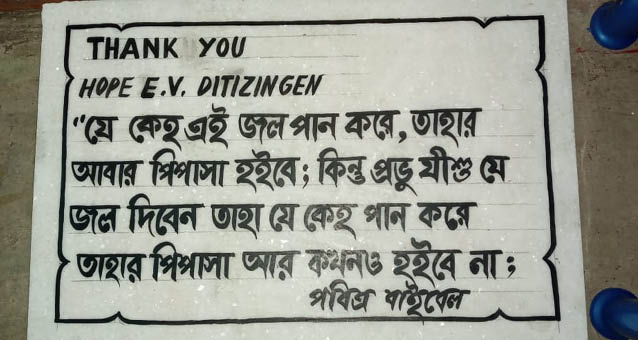 THANK YOU
HOPE E.V. DITIZINGEN
"যে কেহ এই জল পান করে, তাহার
আবার পিপাসা হইবে; কিন্তু প্রভু যীশু যে
জল দিবেন তাহা যে কেহ পান করে
তাহার পিপাসা আর কখনও হইবে না;
পবিত্র বাইবেল